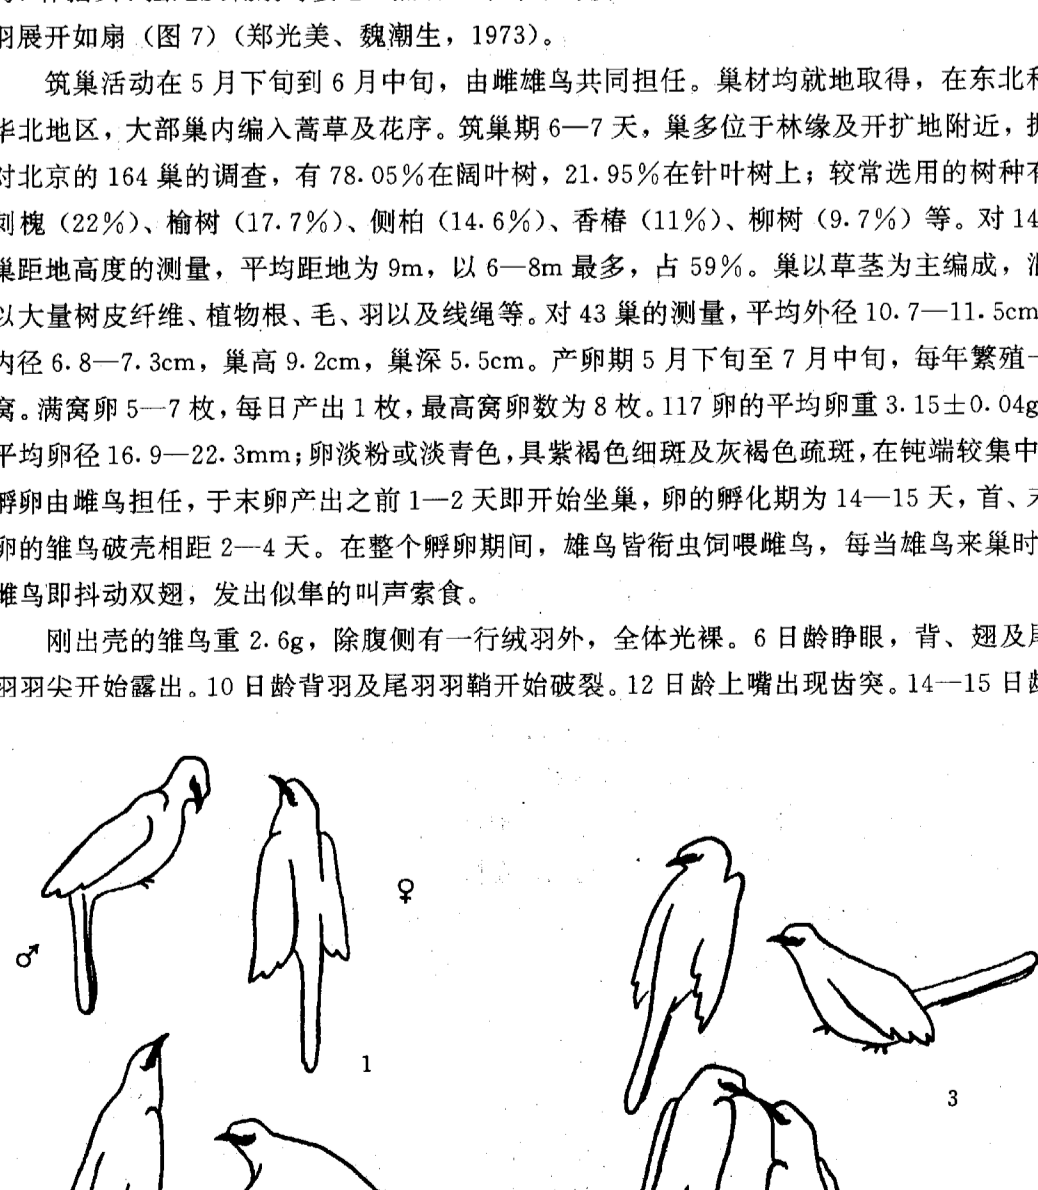 羽展开如扇（图7）（郑光美、魏潮生，1973）。
筑巢活动在5月下旬到6月中旬，由雌雄鸟共同担任。巢材均就地取得，在东北和
华北地区，大部巢内编入蒿草及花序。筑巢期6—7天，巢多位于林缘及开扩地附近，据
对北京的164巢的调查，有78.05%在阔叶树，21.95%在针叶树上；较常选用的树种有
刺槐（22%）、榆树（17.7%）、侧柏（14.6%）、香椿（11%）、柳树（9.7%）等。对14
巢距地高度的测量，平均距地为9m，以6—8m最多，占59%。巢以草茎为主编成，混
以大量树皮纤维、植物根、毛、羽以及线绳等。对43巢的测量，平均外径10.7—11.5cm
内径6.8—7.3cm，巢高9.2cm，巢深5.5cm。产卵期5月下旬至7月中旬，每年繁殖一
窝。满窝卵5—7枚，每日产出1枚，最高窝卵数为8枚。117卵的平均卵重3.15±0.04g
平均卵径16.9—22.3mm；卵淡粉或淡青色，具紫褐色细斑及灰褐色疏斑，在钝端较集中
孵卵由雌鸟担任，于末卵产出之前1—2天即开始坐巢，卵的孵化期为14—15天，首、末
卵的雏鸟破壳相距2—4天。在整个孵卵期间，雄鸟皆衔虫饲喂雌鸟，每当雄鸟来巢时
雌鸟即抖动双翅，发出似隼的叫声索食。
刚出壳的雏鸟重2.6g，除腹侧有一行绒羽外，全体光裸。6日龄睁眼，背、翅及尾
羽羽尖开始露出。10日龄背羽及尾羽羽鞘开始破裂。12日龄上嘴出现齿突。14—15日龄
♀
♂
1
3